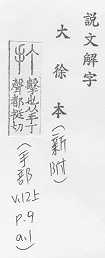 説文解字
大徐本(新附)
打
擊也从手丁
聲都挺切
(手部
v.12上
p.9
a.1)